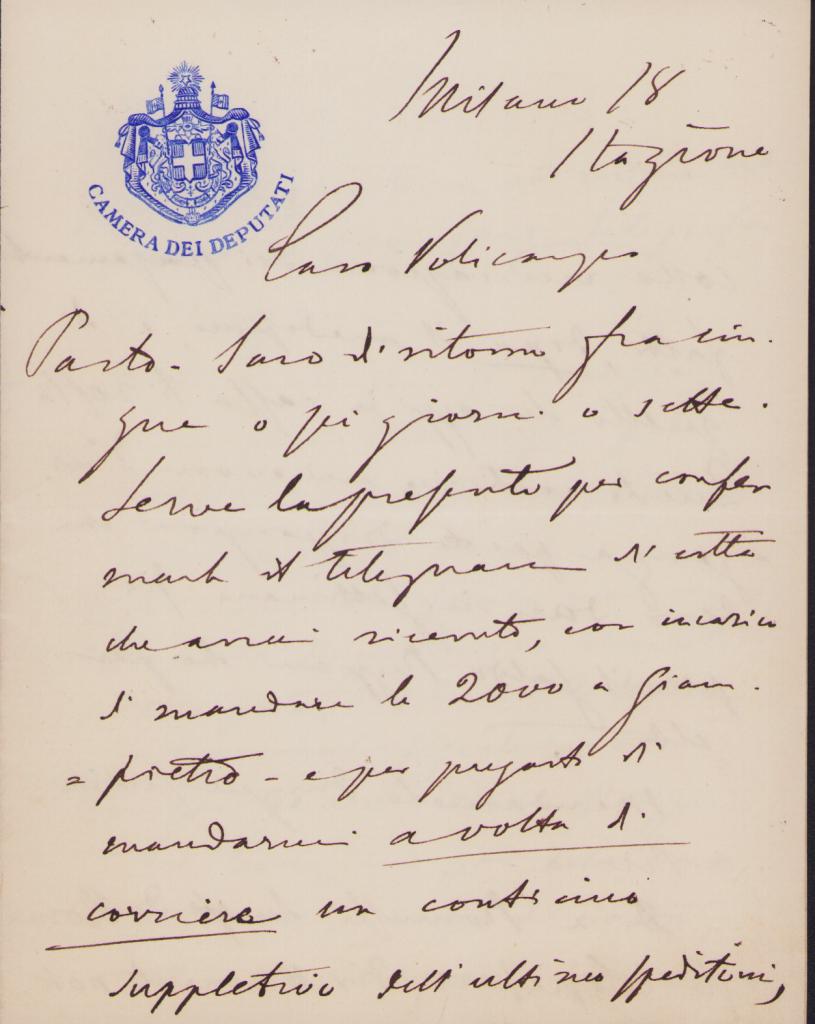 CAMERA DEI DEPUTATI
Milano 18
Stazione
Caro
Parto - Sarò di ritorno fra cin-
que o sei giorni o sette.
Serve la presente per confer
marti il telegramma di
che avrai ricevuto, con incarico
di mandare le 2000 a Giam-
=pietro - e per pregarti di
mandarmi a volta di
corriere un conticino
suppletivo dell'ultime spedizioni,